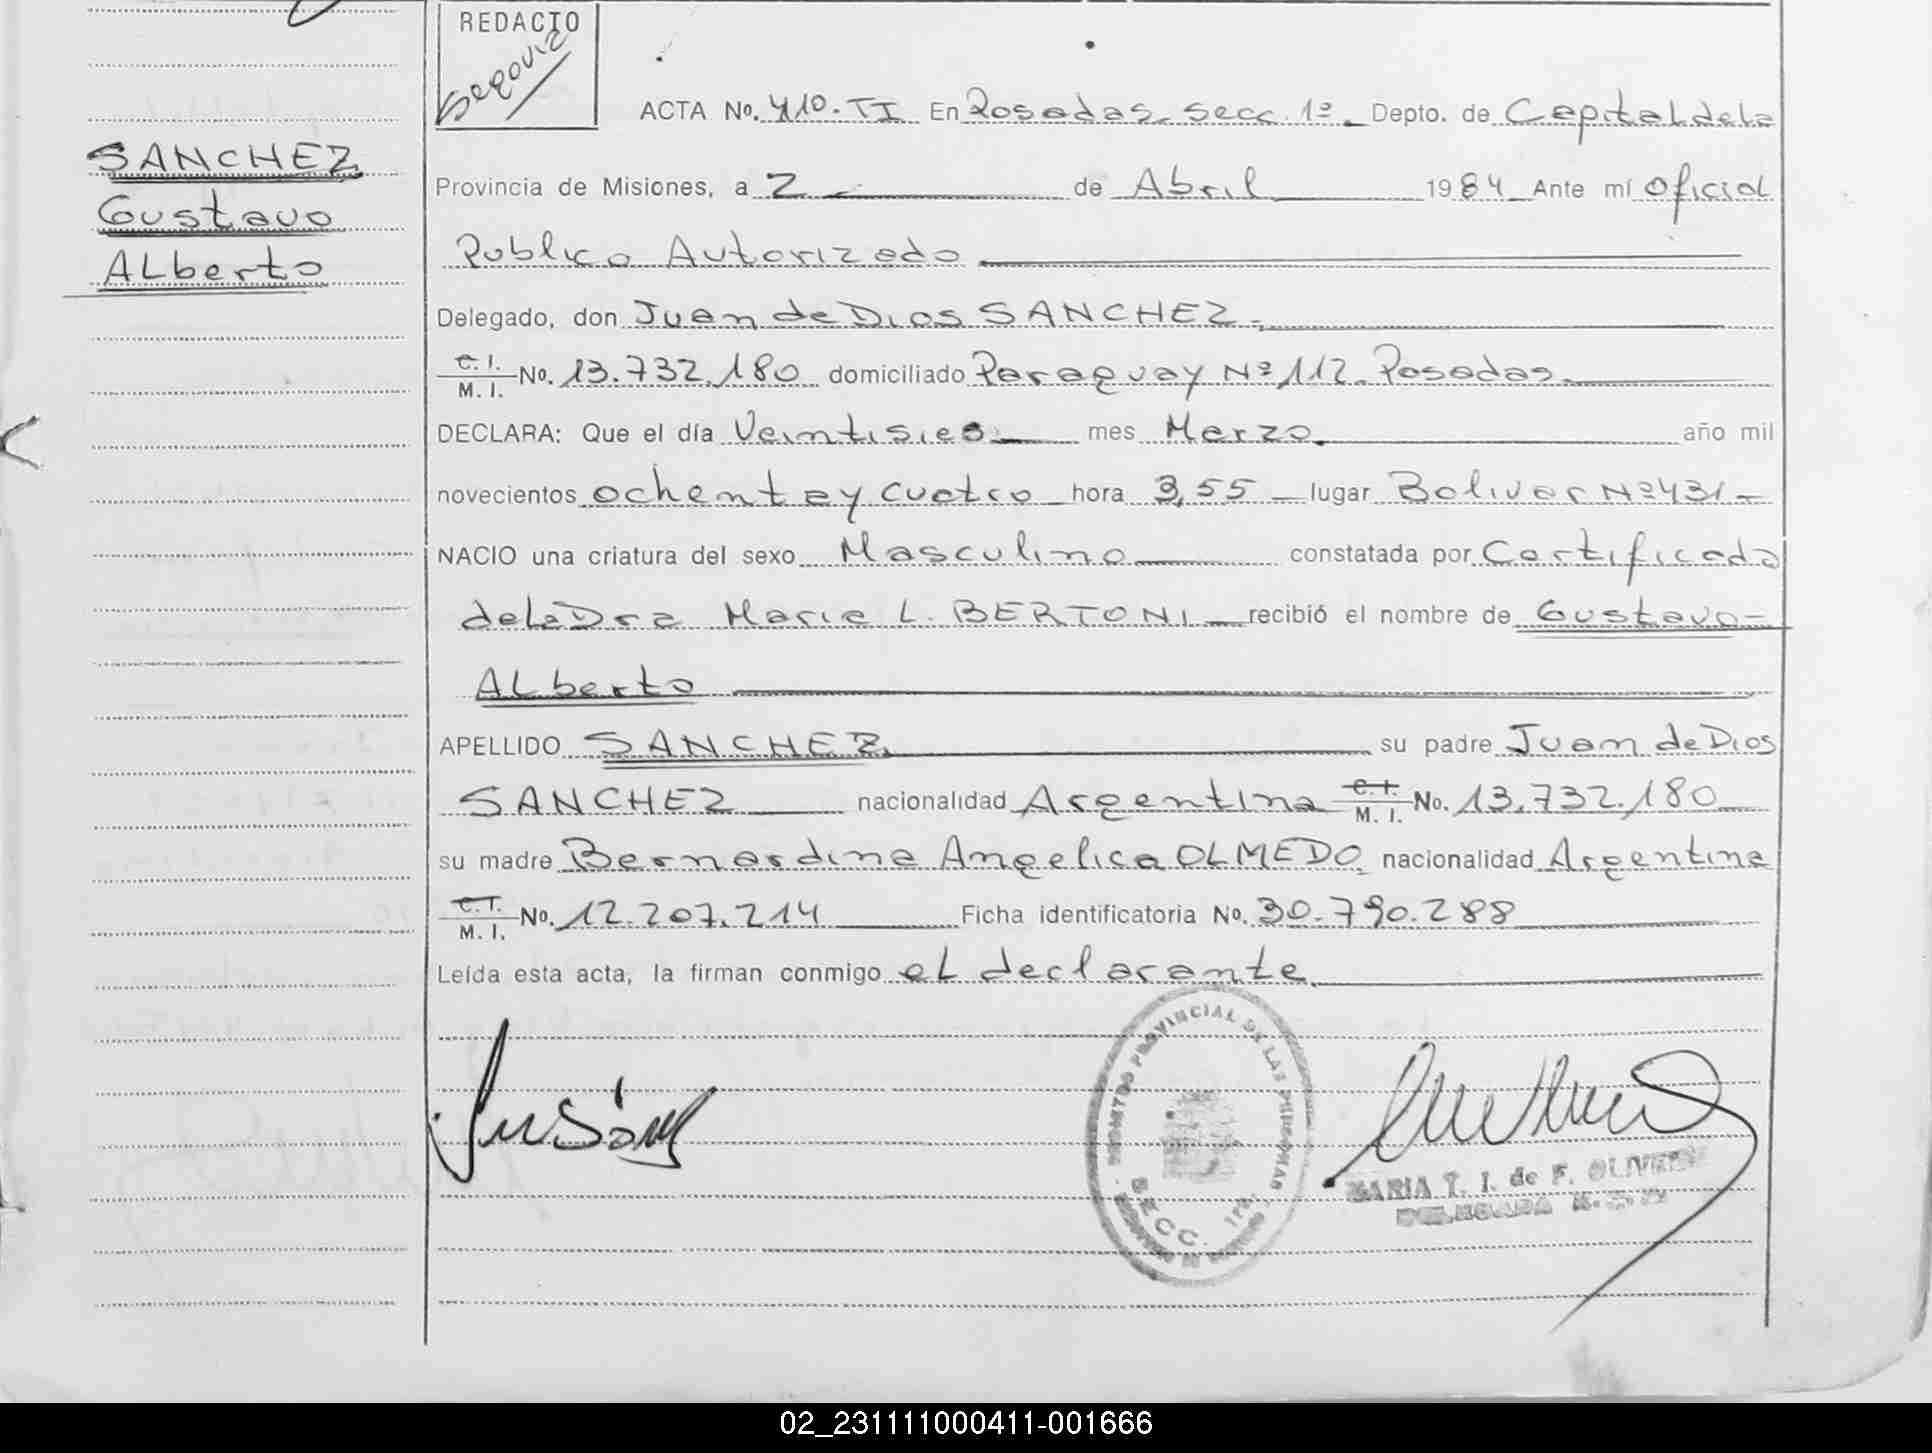 REDACTO
Segovia
ACTA No. 410. TI En Posadas, secc. 1º. Depto. de Capital de la
SANCHEZ
Gustavo
Alberto
Provincia de Misiones, a 2 de Abril 1984 Ante mí oficial
Publico Autorizado
Delegado, don Juan de Dios SANCHEZ.
C. I.
M. I. No. 13.732.180 domiciliado Paraguay Nº 112. Posadas.
DECLARA: Que el día Veintisies mes Marzo. año mil
novecientos ochenta y cuatro hora 3,55 lugar Bolivar Nº 431-
NACIO una criatura del sexo Masculino constatada por Certificado
de la Dra Maria L. BERTONI recibió el nombre de Gustavo-
Alberto
APELLIDO SANCHEZ su padre Juan de Dios
SANCHEZ nacionalidad Argentina C. I. M. I. No. 13.732.180
su madre Bernardina Angelica OLMEDO, nacionalidad Argentina
C. I.
M. I. No. 12.207.214 Ficha identificatoria No. 30.790.288
Leída esta acta, la firman conmigo el declarante.
PROVINCIAL DE LAS PERSONAS
SECC. 1RA.
MARIA T. I. de F. OLIVERA
DELEGADA
02_231111000411-001666